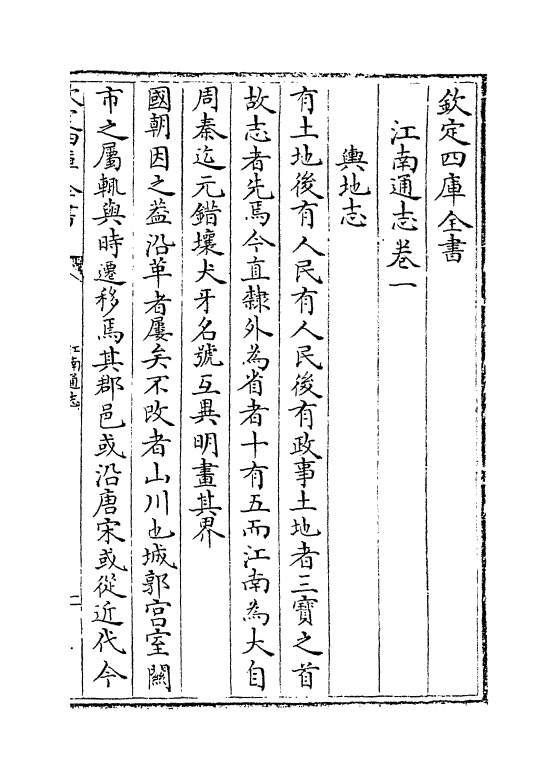 欽定四庫全書
江南通志卷一
輿地志
有土地後有人民有人民後有政事土地者三寶之首
故志者先焉今直隸外為省者十有五而江南為大自
周秦迄元錯壤犬牙名號互異明畫其界
國朝因之益沿革者屢矣不改者山川也城郭宫室闤
市之屬輒與時遷移焉其郡邑或沿唐宋或從近代今
江南通志